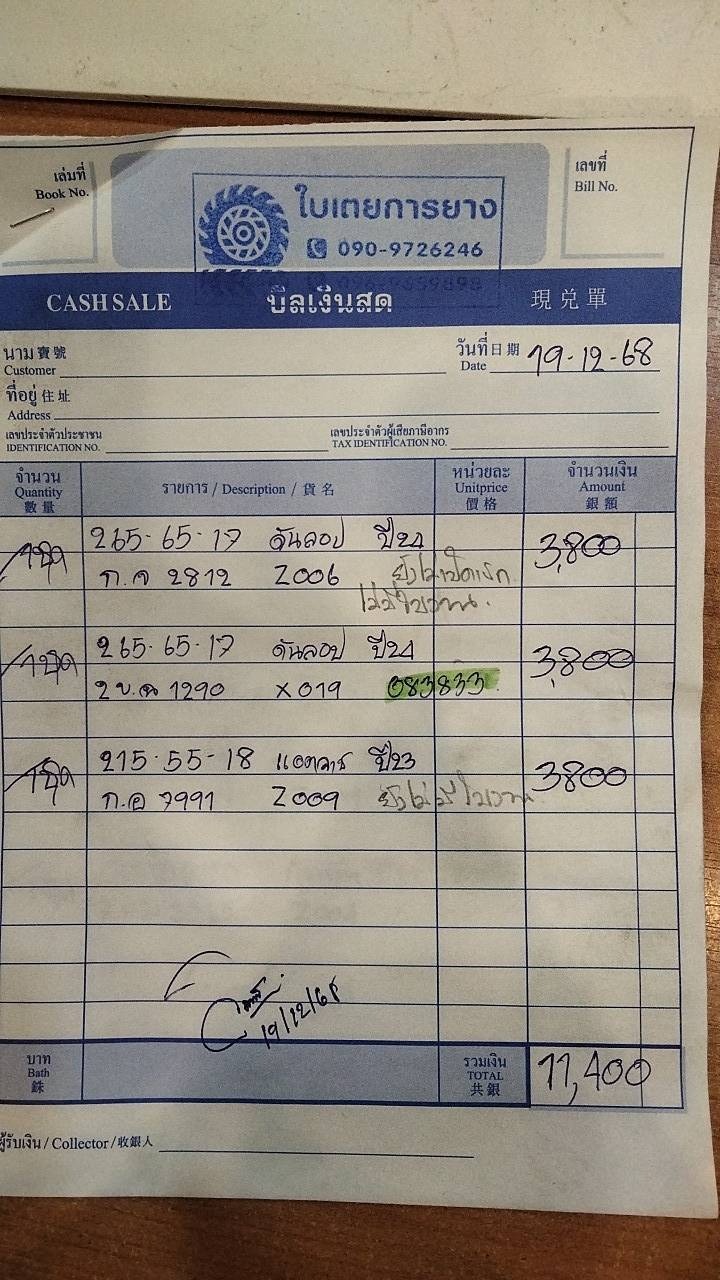 เล่มที่
Book No.
ใบเตยการยาง
090-9726246
เลขที่
Bill No.
CASH SALE บิลเงินสด 現兌單
นาม 寶號
Customer
วันที่ 日期
Date 19-12-68
ที่อยู่ 住址
Address
เลขประจำตัวประชาชน
IDENTIFICATION NO.
เลขประจำตัวผู้เสียภาษีอากร
TAX IDENTIFICATION NO.
จำนวน
Quantity
數量
รายการ / Description / 貨名
หน่วยละ
Unitprice
價格
จำนวนเงิน
Amount
銀額
1ชุด 265-65-17 ดันลอป ปี24 3,800
ก.จ 2812 Z006 ยังไม่เปิดเบิก
ไม่มีใบงาน.
1ชุด 265-65-17 ดันลอป ปี24 3,800
2ข.ฒ 1290 X019 083833
1ชุด 215-55-18 ปี23 3800
ก.อ 7991 Z009 ยังไม่มีใบงาน
19/12/68
บาท
Bath
銖
รวมเงิน
TOTAL
共銀
11,400
ผู้รับเงิน / Collector / 收銀人